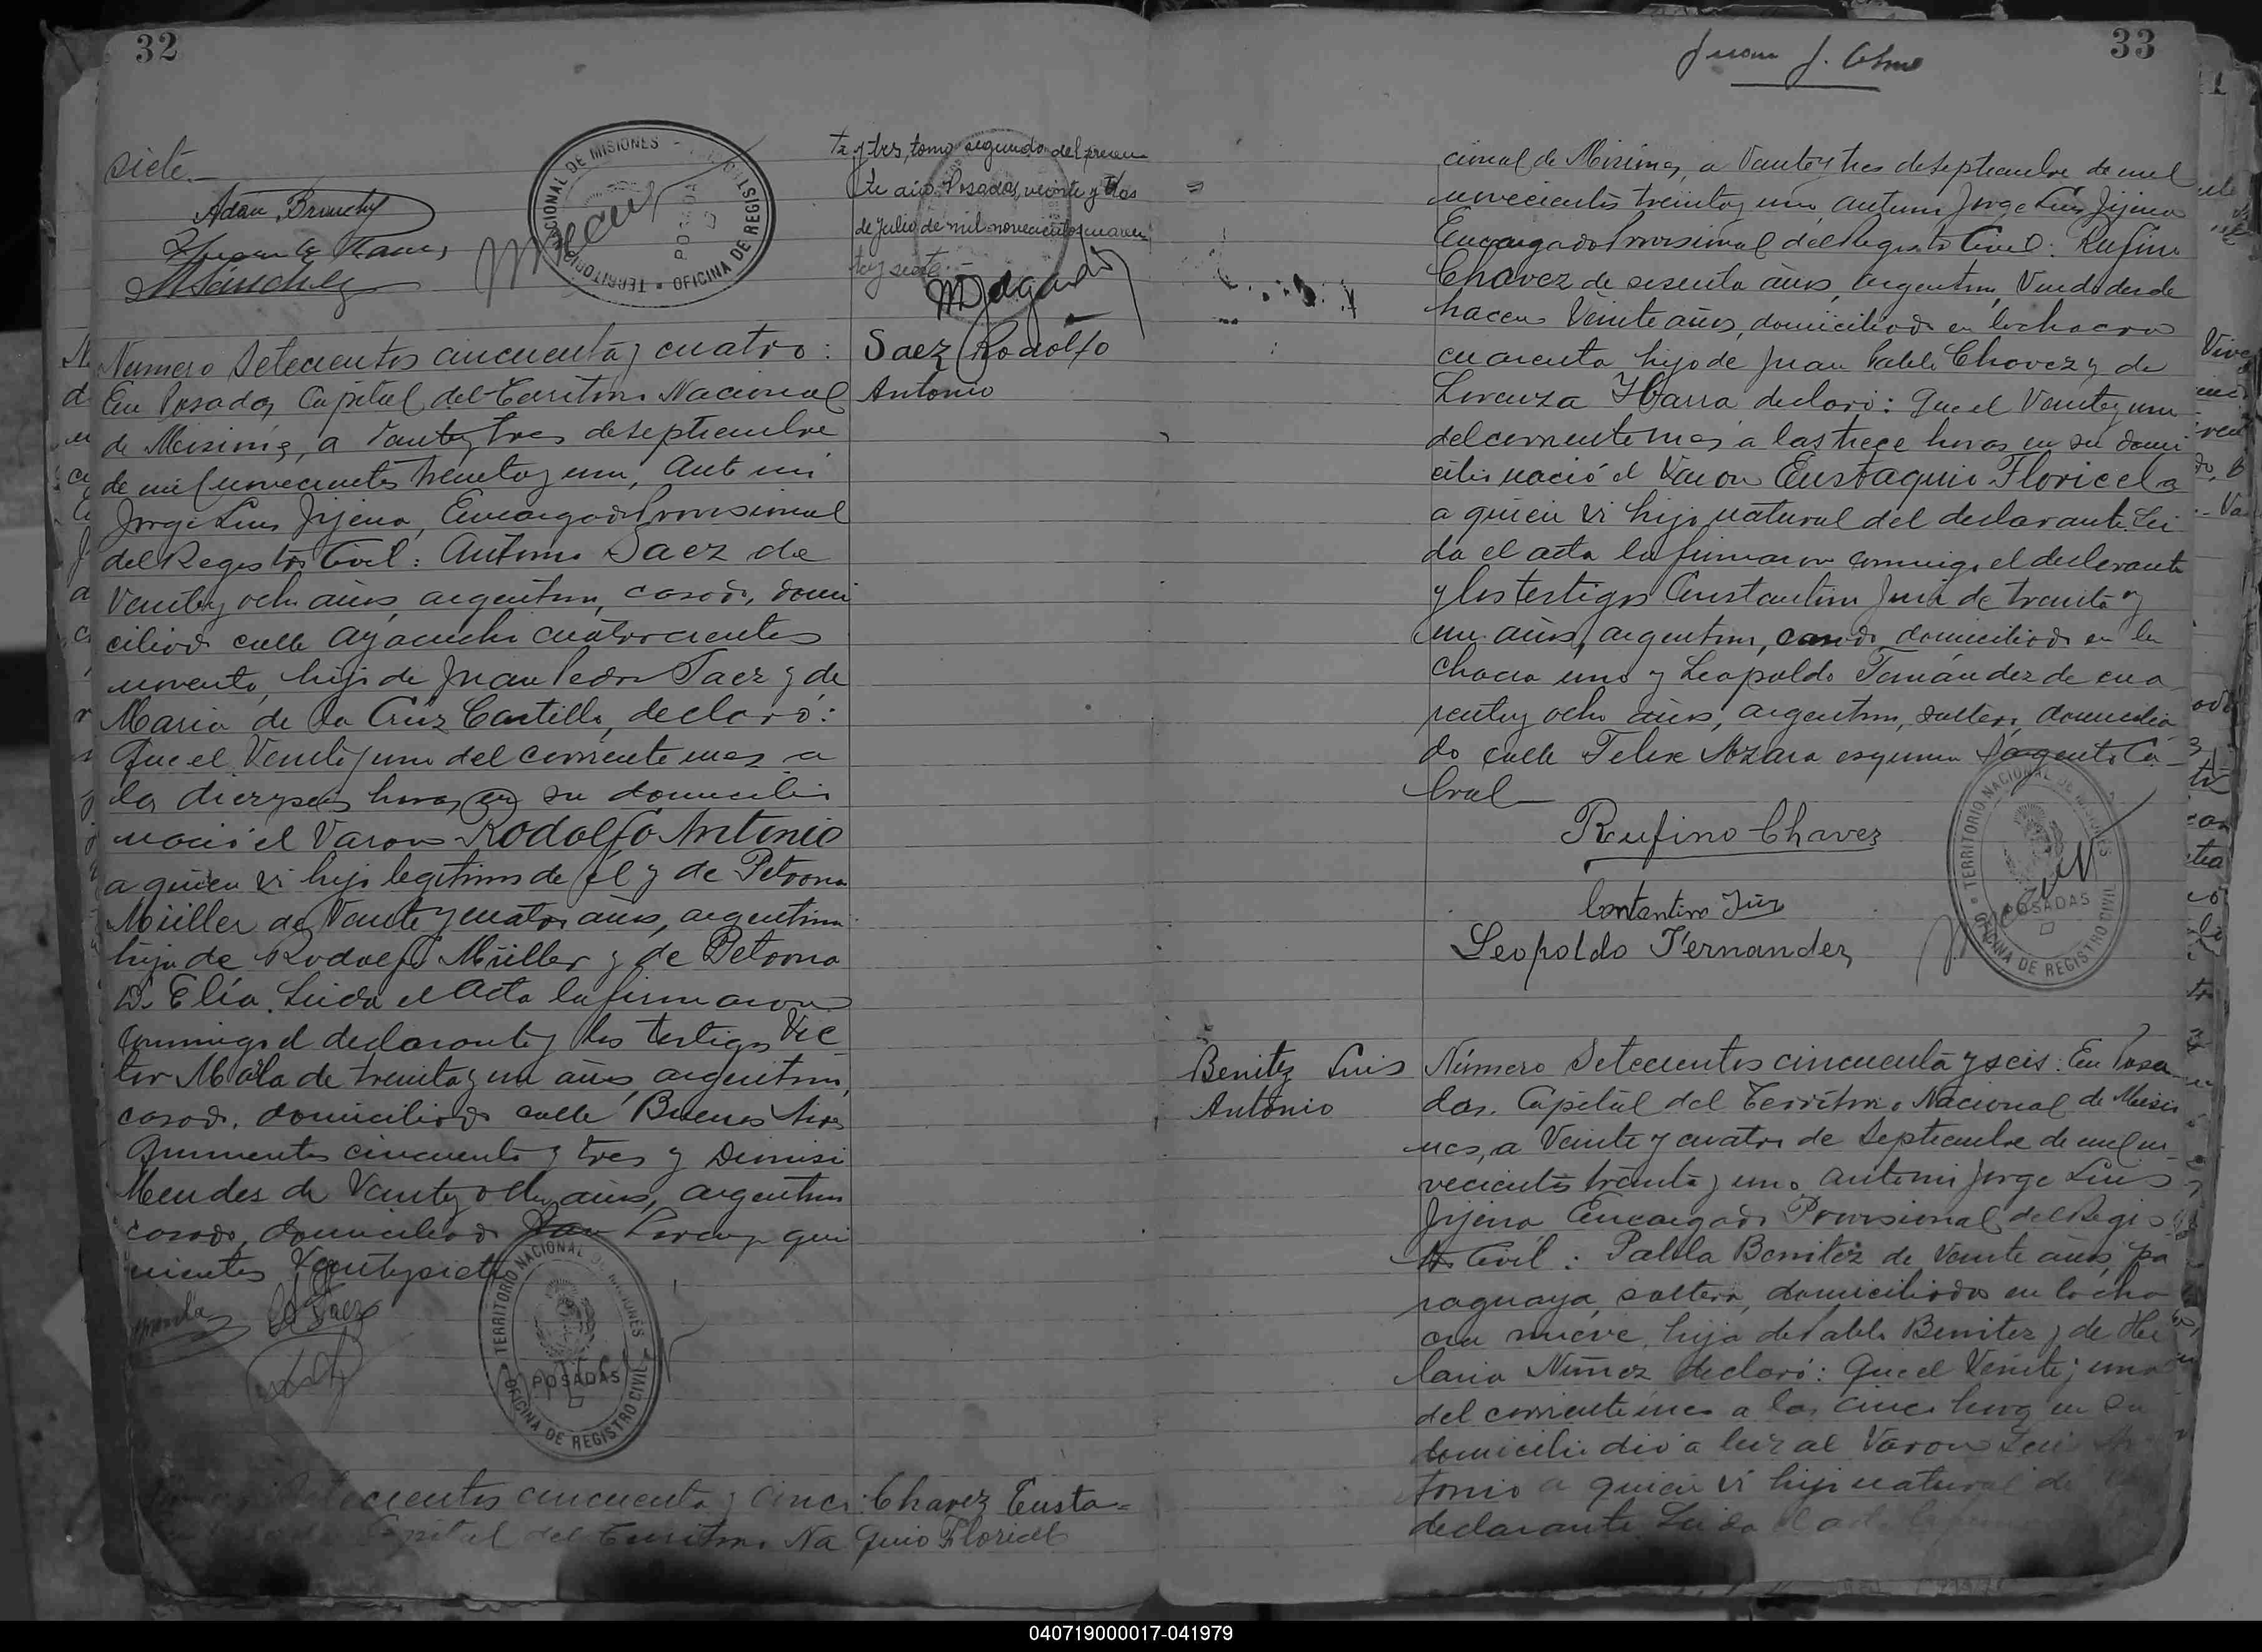 32
siete.—
Adán
Sánchez
TERRITORIO NACIONAL DE MISIONES
OFICINA DE REGISTRO
POSADAS
ta y tres, tomo segundo del presen
te año. Posadas, veinte y dos
de Julio de mil novecientos cuaren
ta y siete.—
Numero Setecientos cincuenta y cuatro:
En Posadas, Capital del Territorio Nacional
de Misiones, a Veinte y tres de septiembre
de mil novecientos treinta y uno, Ante mi
Jorge Luis Jijena, Encargado Provisional
del Registro Civil: Antonio Saez de
Veinte y ocho años, argentino, casado, domi
ciliado calle Ayacucho cuatrocientos
noventa, hijo de Juan Pedro Saez y de
Maria de la Cruz Castillo, declaró:
Que el Veinte y uno del corriente mes a
las diez y seis horas en su domicilio
nació el Varon Rodolfo Antonio
a quien vi hijo legitimo de él y de Petrona
Müller de Veinte y cuatro años, argentina
hija de Rodolfo Müller y de Petrona
D. Elía. Leida el Acta la firmaron
conmigo el declarante y los testigos Vic
tor Mola de treinta y un años, argentino,
casado, domiciliado calle Buenos Aires
Quinientos cincuenta y tres y Dionisi
Mendes de Veinte y ocho años, argentino
casado, domiciliado qui
nientos Veinte y siete
Saez
TERRITORIO NACIONAL DE MISIONES
POSADAS
OFICINA DE REGISTRO CIVIL
Saez Rodolfo
Antonio
Setecientos cincuenta y cinco:
Capital del Territorio Na
Chavez Eusta=
quio Floricel
33
Juan J.
cional de Misiones, a Veinte y tres de septiembre de mil
novecientos treinta y uno, ante mi Jorge Luis Jijena
Encargado Provisional del Registro Civil: Rufino
Chavez de sesenta años, argentino, Viudo desde
hacen Veinte años, domiciliado en la chacra
cuarenta hijo de Juan Pablo Chavez y de
Lorenza Ybarra declaró: Que el Veinte y uno
del corriente mes a las trece horas en su domi
cilio nació el Varon Eustaquio Floricel a
a quien vi hijo natural del declarante. Lei
da el acta la firmaron conmigo el declarante
y los testigos Constantino Juiz de treinta y
un años, argentino, casado, domiciliado en la
chacra uno y Leopoldo Fernández de cua
renta y ocho años, argentino, soltero, domicilia
do calle Felix Azara esquina Sargento Ca
bral—
Rufino Chavez
Leopoldo Fernandez
TERRITORIO NACIONAL DE MISIONES
POSADAS
OFICINA DE REGISTRO CIVIL
Benitez Luis
Antonio
Número Setecientos cincuenta y seis: En Posa
das. Capital del Territorio Nacional de Misio
nes, a Veinte y cuatro de Septiembre de mil no
vecientos treinta y uno ante mi Jorge Luis
Jijena Encargado Provisional del Regis
tro Civil: Pabla Benitez de Veinte años, pa
raguaya, soltera, domiciliada en la cha
cra nueve, hija de Pablo Benitez y de He
laria Nuñez declaró: Que el Veinte y uno
del corriente mes a las cinco horas en su
domicilio dió a luz al Varon Luis An
tonio a quien vi hijo natural de
declarante. Leida el acta la
040719000017-041979